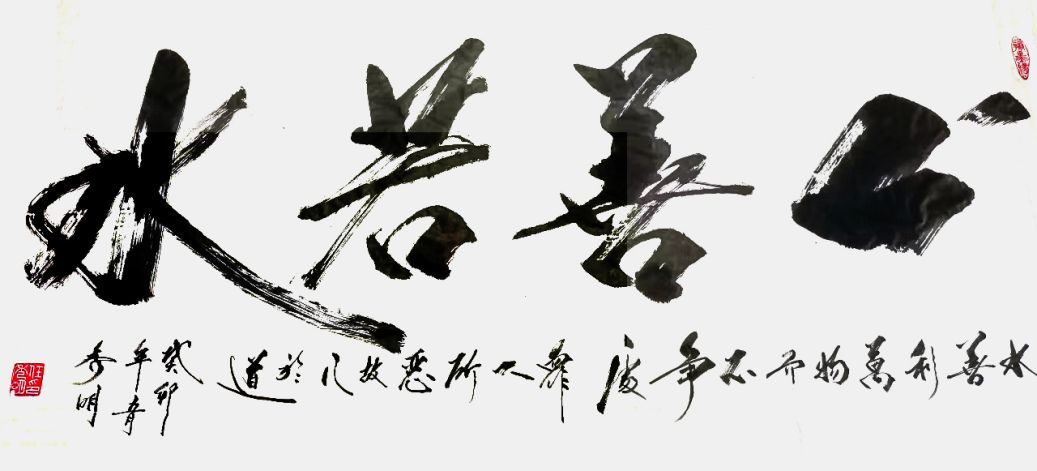 上善若水
水善利萬物而不争處眾人所惡故几於道
癸卯
年
明